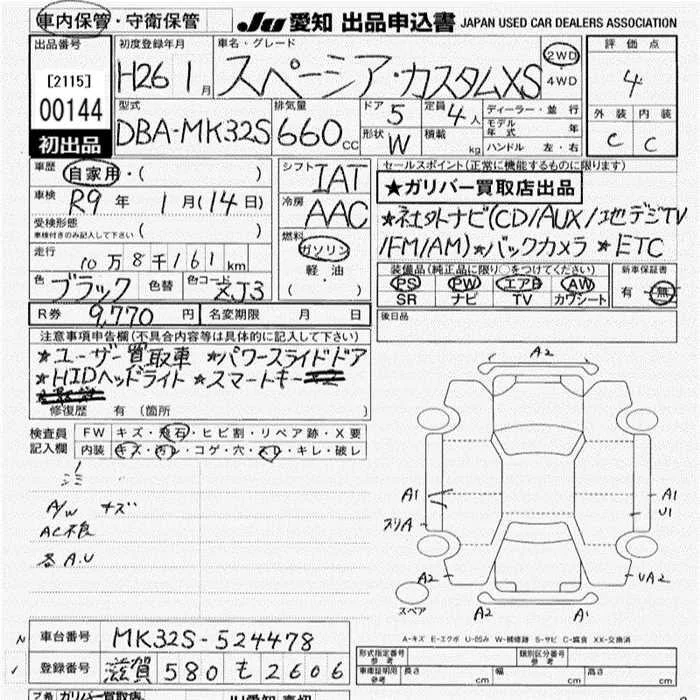 車内保管・守衛保管
JU 愛知 出品申込書 JAPAN USED CAR DEALERS ASSOCIATION
出品番号
[2115]
00144
初出品
初度登録年月
H26 1月
車名・グレード
スペーシア・カスタムXS
2WD
4WD
評価点
4
外装 内装
C C
型式
DBA-MK32S
排気量
660cc
ドア 5
定員 4人
形状 W
積載 kg
ディーラー・並行
モデル年式 年
ハンドル 左・右
車歴 自家用・( )
車検 R9年 1月(14日)
受検形態
車検付きのみ記入して下さい ( )
走行 10万8千161km
色 ブラック 色替 色コード ZJ3
シフト IAT
冷房 AAC
燃料
ガソリン
軽油
( ・ )
セールスポイント(正常に機能するものに限ります)
★ガリバー買取店出品
★社外ナビ(CD/AUX/地デジTV
/FM/AM)★バックカメラ ★ETC
装備品(純正品に限り○をつけてください)
PS PW エアB AW
SR ナビ TV カワシート
新車保証書
有・無
R券 9,770円 名変期限 月 日
後日品
注意事項申告欄(不具合内容等は具体的に記入して下さい)
★ユーザー買取車 ★パワースライドドア
★HIDヘッドライト ★スマートキー
修復歴 有 (箇所 )
検査員
記入欄
FW キズ・飛石・ヒビ割・リペア跡・X要
内装 キズ・汚レ・コゲ・穴・スレ・キレ・破レ
A/W キズ
AC不良
各A.U
A2
A1
スリA
A2
A1
U1
UA2
A2
A1
スペア
A-キズ E-エクボ U-凹み W-補修跡 S-サビ C-腐食 XX-交換済
車台番号 MK32S-524478
登録番号 滋賀 580 も 2606
形式指定番号
参考
類別区分番号
参考
車庫証明用
参考
長さ cm 幅 cm 高さ cm
ガリバー買取店